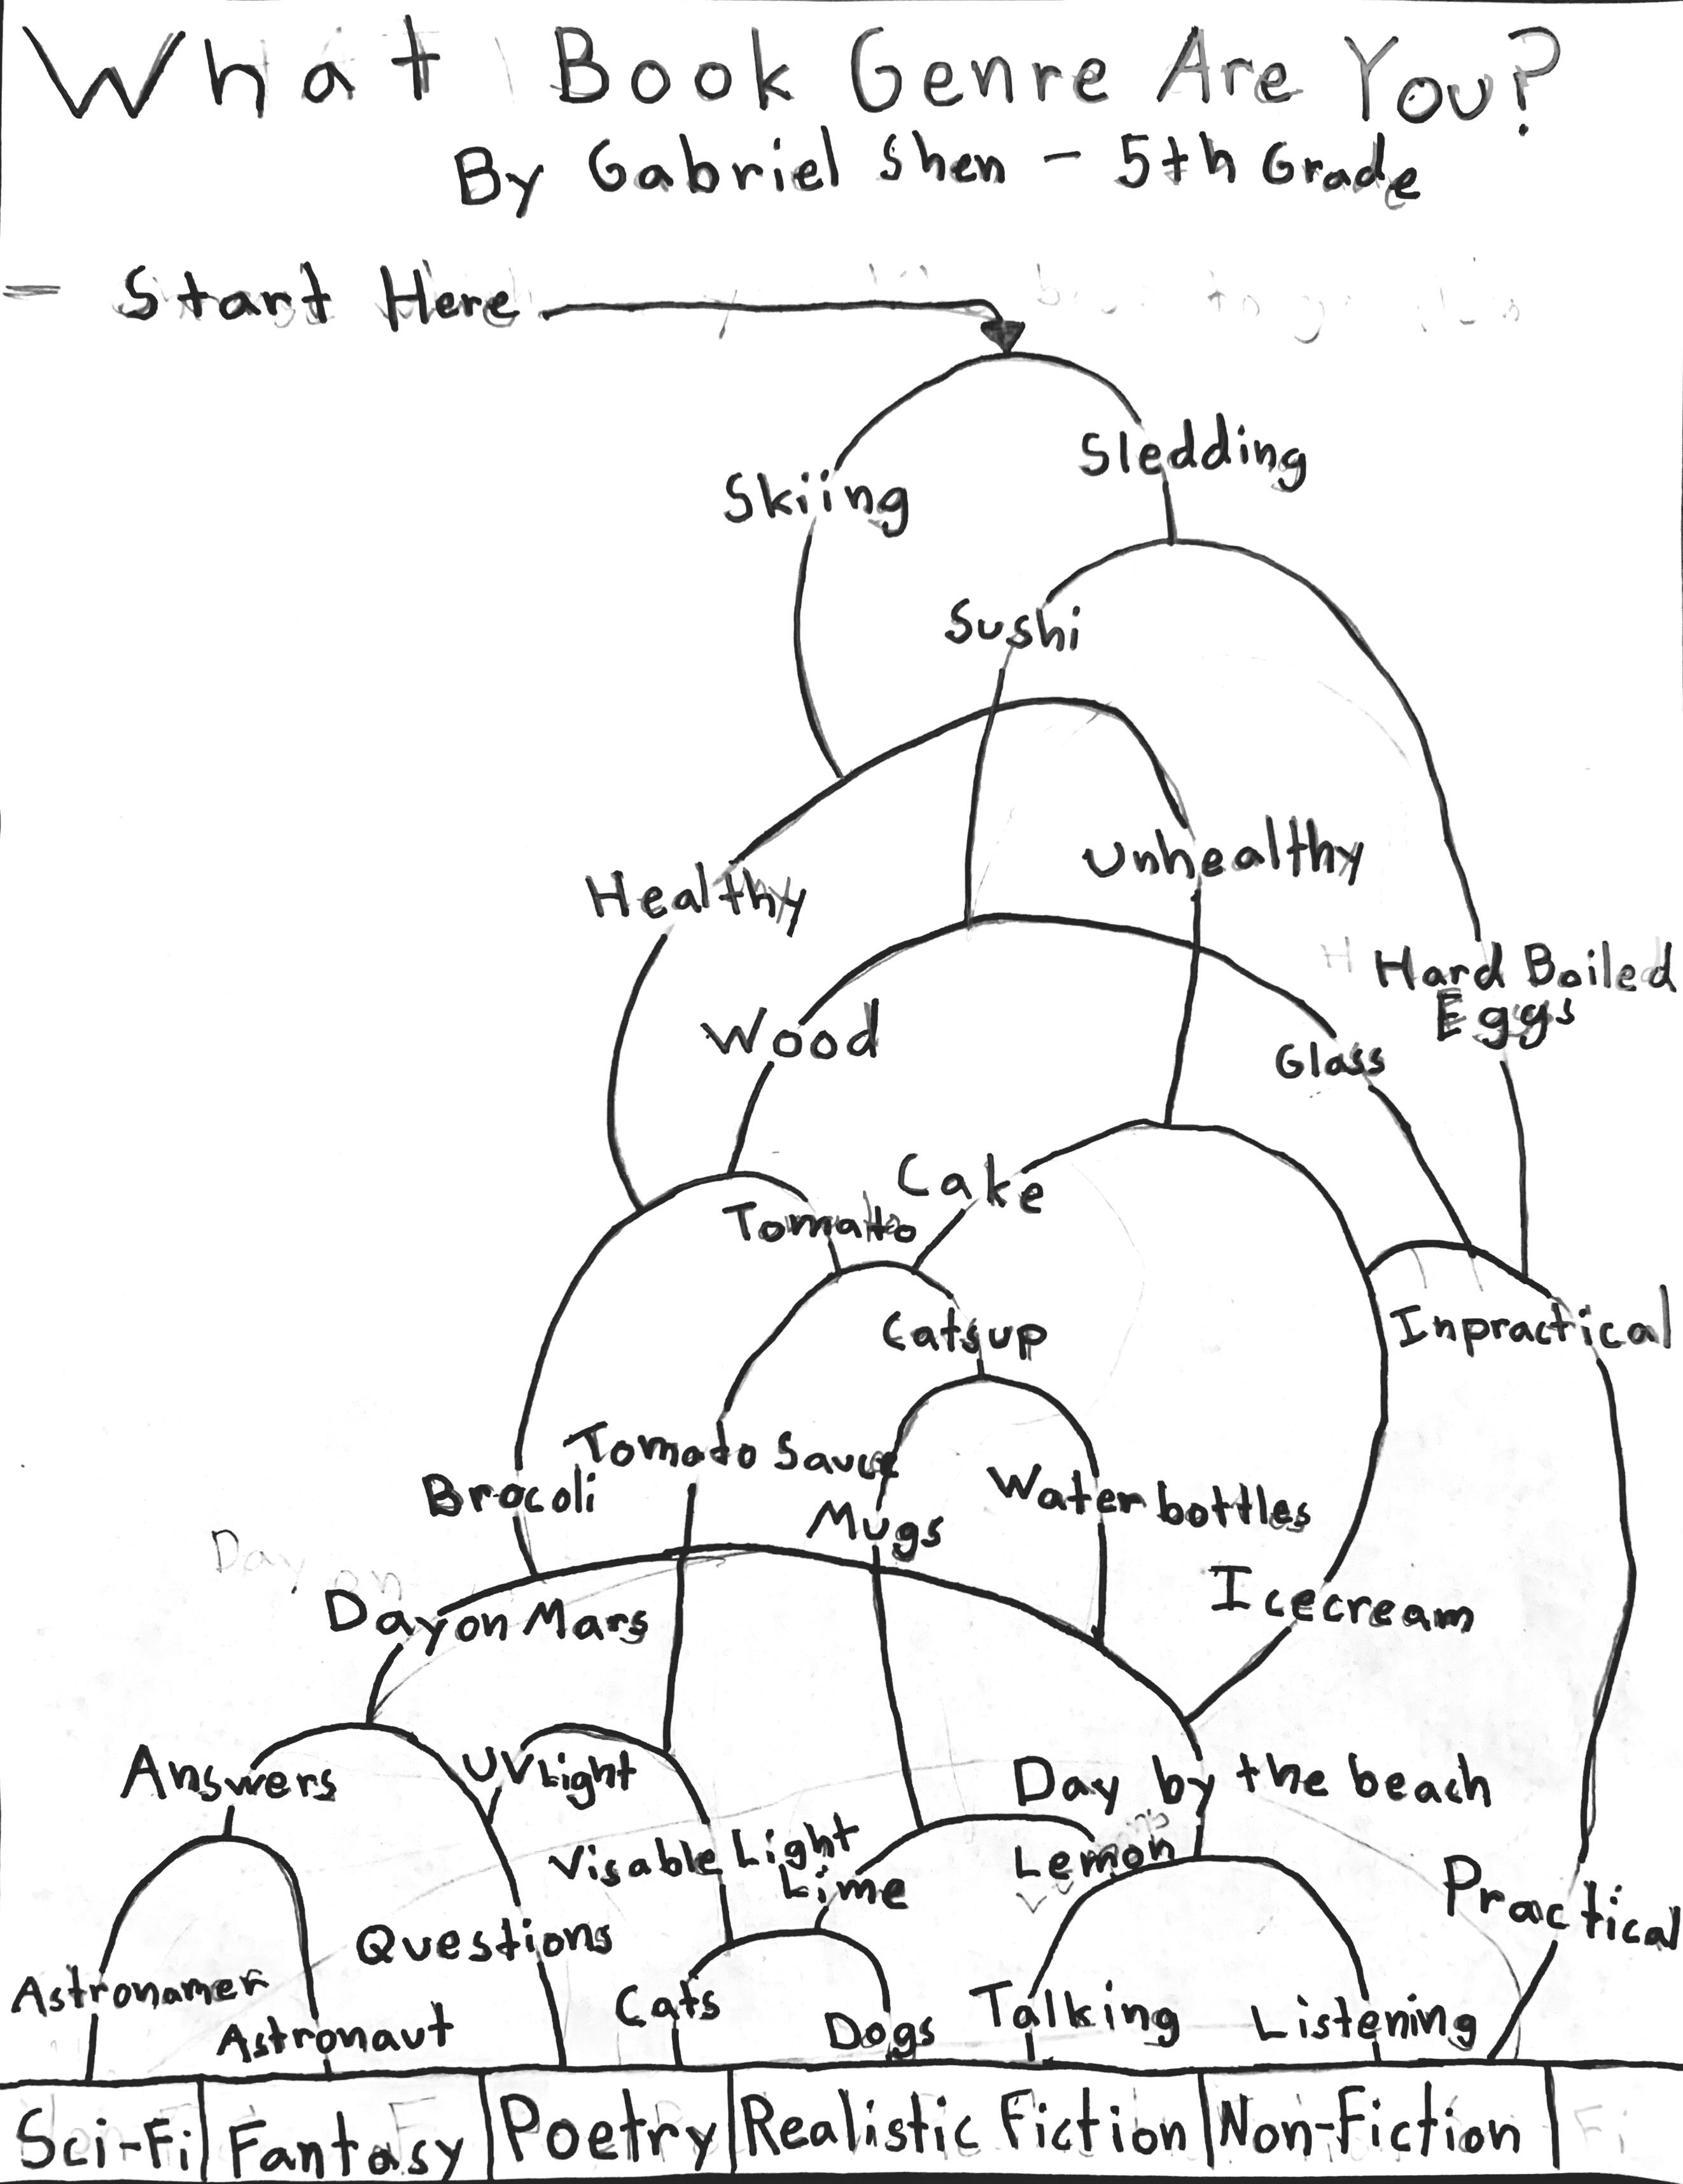 What Book Genre Are You?
By Gabriel Shen - 5th Grade
= Start Here
Sledding
Skiing
Sushi
Unhealthy
Healthy
Hard Boiled
Eggs
Wood
Glass
Cake
Tomato
Catsup
Inpractical
Tomato Sauce
Brocoli
Water bottles
Mugs
Icecream
Day on Mars
Answers
UV Light
Day by the beach
Visable Light
Lemon
Lime
Practical
Questions
Astronamer
Cats
Talking
Listening
Astronaut
Dogs
Sci-Fi Fantasy Poetry Realistic Fiction Non-Fiction